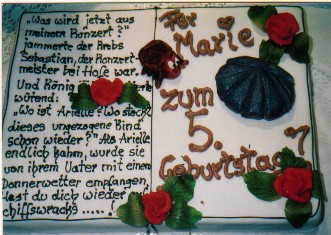 „Was wird jetzt aus
meinem Konzert?"
jammerte der Krebs
Sebastian, der Konzert-
meister bei Hofe war.
Und König
wütend:
„Wo ist Arielle? Wo steckt
dieses ungezogene Kind
schon wieder?" Als Arielle
endlich kam, wurde sie
von ihrem Vater mit einem
Donnerwetter empfangen,
hast du dich wieder
chiffswracks .....!
Für
Marie
zum
5.
Geburtstag